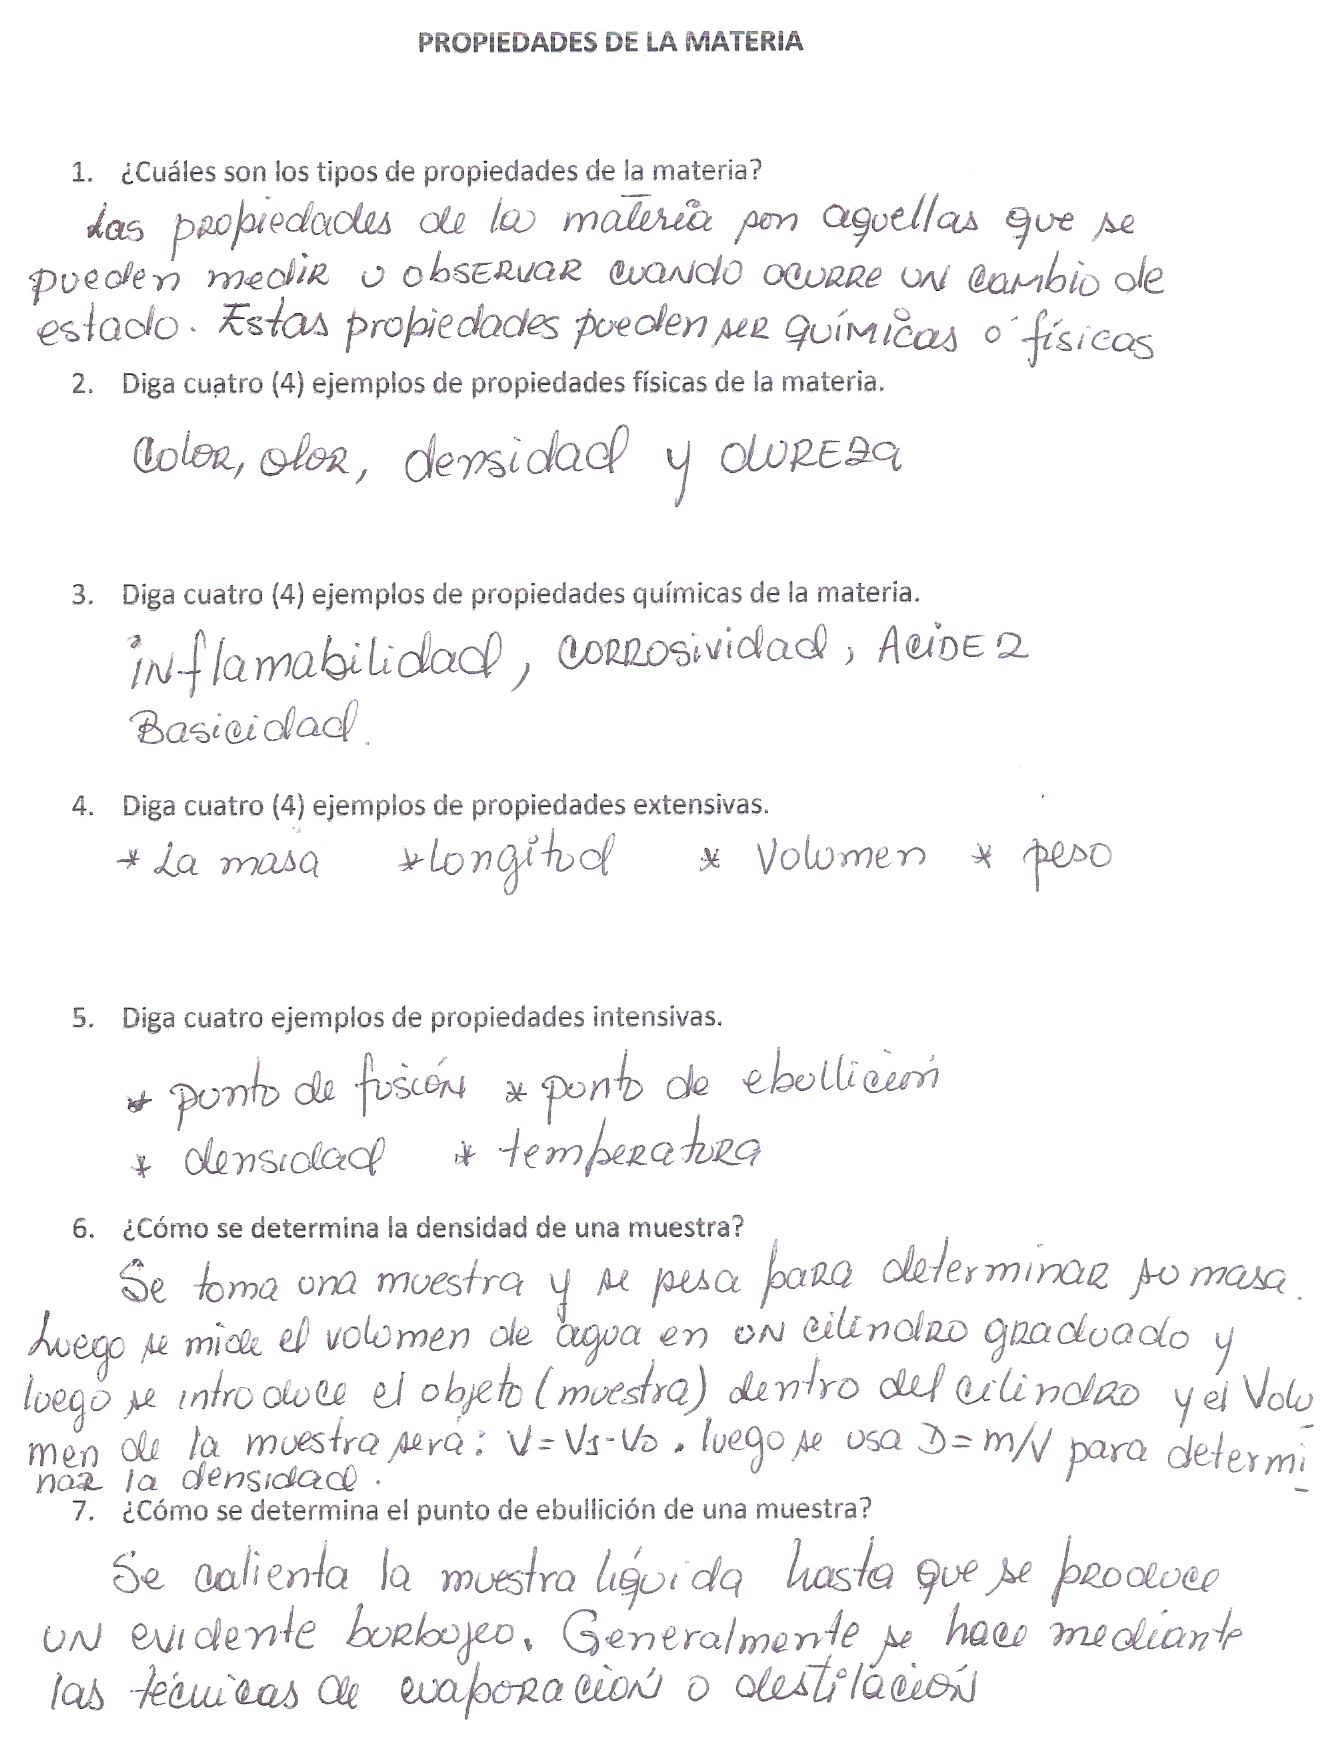 PROPIEDADES DE LA MATERIA
1. ¿Cuáles son los tipos de propiedades de la materia?
Las propiedades de la materia son aquellas que se
pueden medir u observar cuando ocurre un cambio de
estado. Estas propiedades pueden ser químicas o físicas
2. Diga cuatro (4) ejemplos de propiedades físicas de la materia.
Color, olor, densidad y dureza
3. Diga cuatro (4) ejemplos de propiedades químicas de la materia.
inflamabilidad, corrosividad, Acidez
Basicidad.
4. Diga cuatro (4) ejemplos de propiedades extensivas.
* La masa * longitud * Volumen * peso
5. Diga cuatro ejemplos de propiedades intensivas.
* punto de fusión * punto de ebullición
* densidad * temperatura
6. ¿Cómo se determina la densidad de una muestra?
Se toma una muestra y se pesa para determinar su masa.
Luego se mide el volumen de agua en un cilindro graduado y
luego se introduce el objeto (muestra) dentro del cilindro y el Volu
men de la muestra será: V=V1-V0. luego se usa D=m/V para determi
nar la densidad.
7. ¿Cómo se determina el punto de ebullición de una muestra?
Se calienta la muestra líquida hasta que se produce
un evidente burbujeo. Generalmente se hace mediante
las técnicas de evaporación o destilación